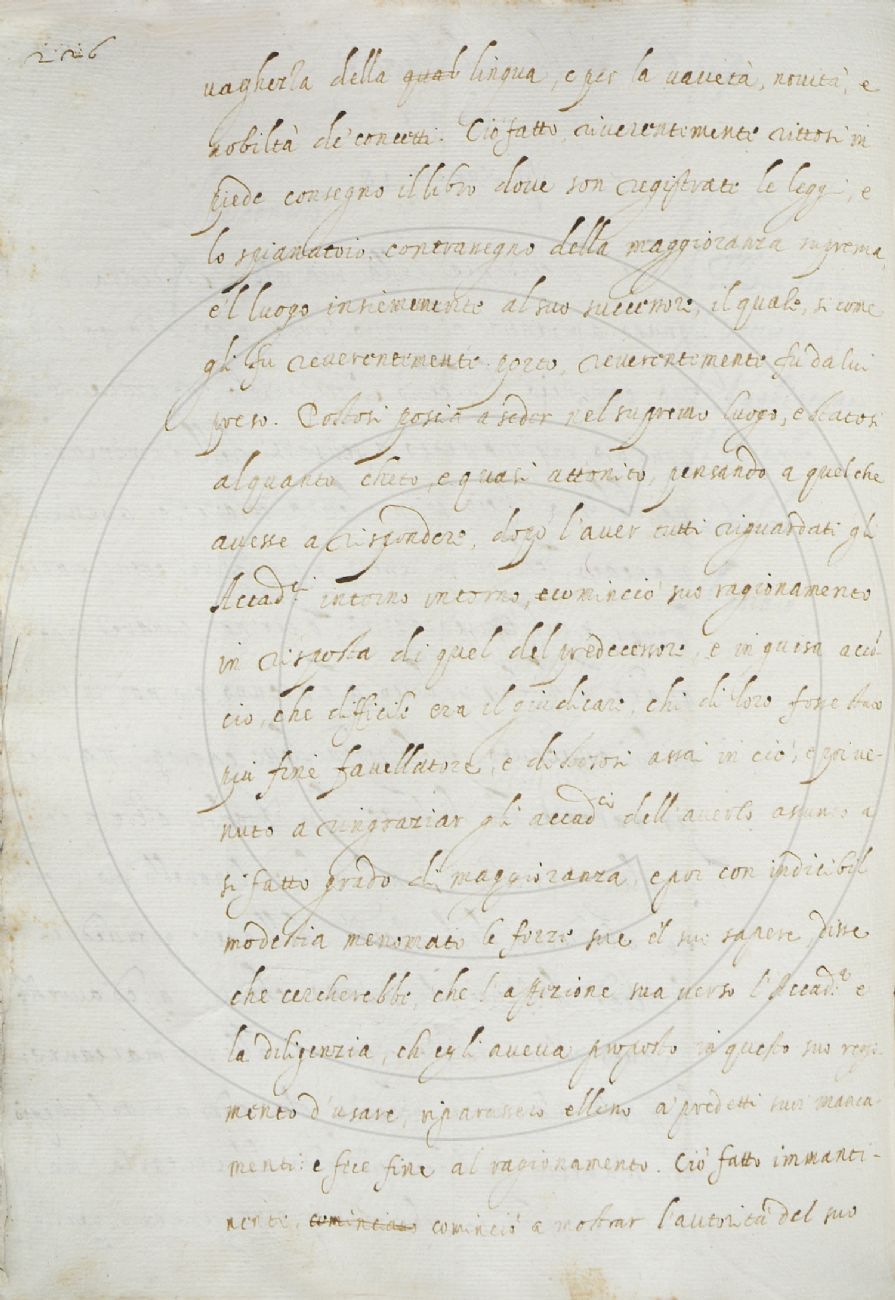 226
vaghezza della qual lingua, e per la varietà, novità, e
nobiltà de' concetti. Ciò fatto, riverentemente rittosi in
piede consegno il libro dove son registrate le leggi, e
lo spianatoio contrasegno della maggioranza suprema,
e'l luogo insiememente al suo successore, il quale, si come
gli fu reverentemente porto, reverentemente fù da lui
preso. Postosi poscia a seder nel supremo luogo, e statosi
alquanto cheto, e quasi attonito, pensando a quel che
avesse a rispondere, dopo l'aver tutti riguardati gli
Accad.ci intorno intorno, ecominciò suo ragionamento
in risposta di quel del predecessore, e in guisa acco-
cio, che difficile era il giudicare, chi di loro fosse stato
piu fine favellatore, e distesosi assai in ciò, e poi ve-
nuto a ringraziar gli accad.ci dell'averlo assunto a
si fatto grado di maggioranza, e poi con indicibil
modestia menomato le forze sue e'l suo sapere, disse
che cercherebbe, che l'affezione sua verso l'Accad.a e
la diligenzia, ch'egli aveva proposto in questo suo reggi-
mento d'usare, riparassero elleno a' predetti suoi manca-
menti: e fece fine al ragionamento. Ciò fatto immanti-
nente, cominciato cominciò a mostrar l'autorità del suo